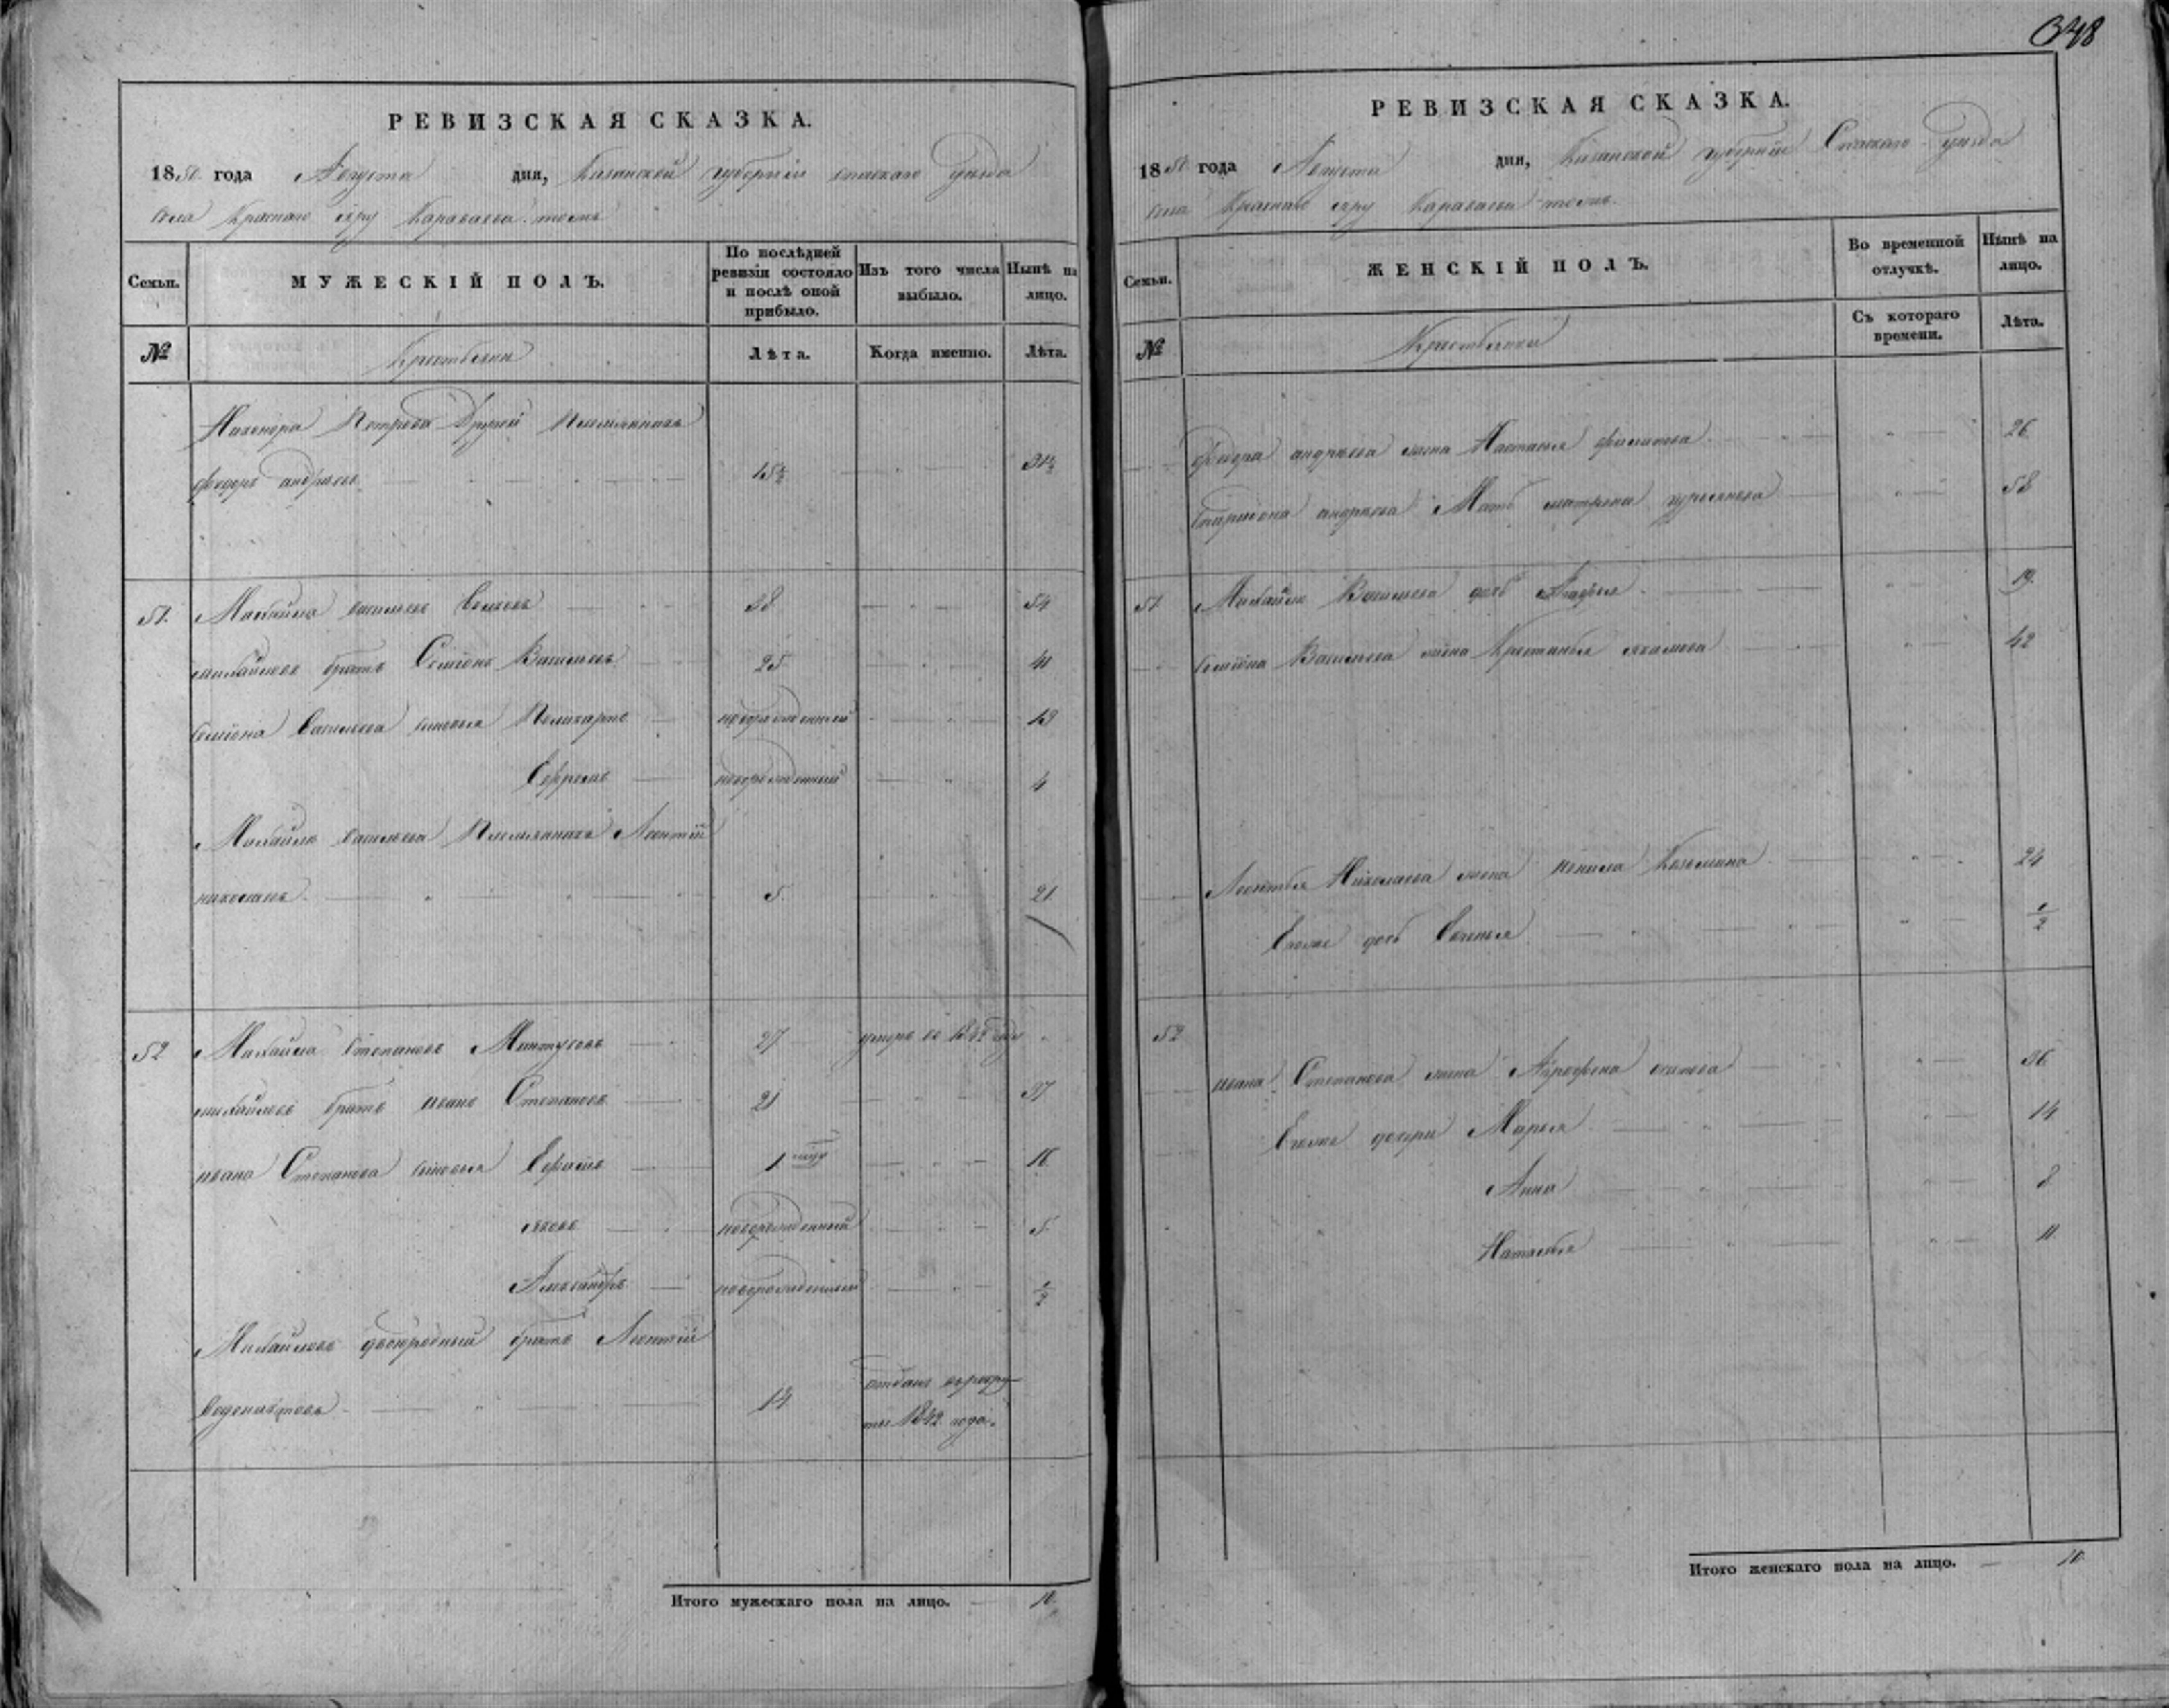 348
РЕВИЗСКАЯ СКАЗКА.
1850 года Августа дня, Казанской губернiи спаскаго уѣзда
села Краснаго яру Караваева тожъ
Семьи. МУЖЕСКІЙ ПОЛЪ. По послѣдней ревизіи состояло и послѣ оной прибыло. Изъ того числа выбыло. Нынѣ на лицо.
№ Крестьяне Лѣта. Когда именно. Лѣта.
Никонора Петрова Другой Племянникъ
федоръ андреевъ 15½ 31½
51. Михайла васильевъ 38 54
михайловъ братъ Семiонъ Васильевъ 25 41
семiона Васильева сыновья Поликарпъ новорожденный 13
Ефремъ новорожденный 4
Михайлы васильева Племянникъ Леонтiй
николаевъ 5 21
52 Михайла Степановъ 27 умеръ въ году
михайловъ братъ иванъ Степановъ 21 37
ивана Степанова сыновья Ефимъ 1 16
яковъ новорожденный 5
Александръ новорожденный ½
Михайловъ двоюродный братъ Леонтiй
14 отданъ въ рекру
ты 1842 года.
Итого мужескаго пола на лицо. 10
РЕВИЗСКАЯ СКАЗКА.
1850 года Августа дня, Казанской губернiи Спаскаго уѣзда
села Краснаго яру Караваева тожъ.
Семьи. ЖЕНСКІЙ ПОЛЪ. Во временной отлучкѣ. Нынѣ на лицо.
№ Крестьянки Съ котораго времени. Лѣта.
федора андреева жена Настасья 26
андреева Мать матрена 58
51 Михайлы Васильева дочь 19
семiона Васильева жена 42
Леонтья Николаева жена Козьмина 24
Ево же дочь ½
52
ивана Степанова жена осипова 36
Ево же дочери Марья 14
Анна 8
Наталья 11
Итого женскаго пола на лицо. 10